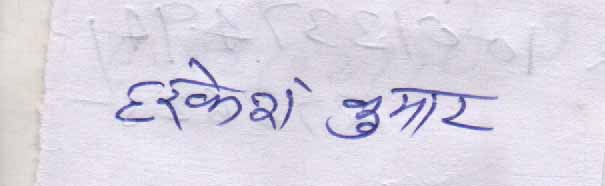 हरकेश कुमार